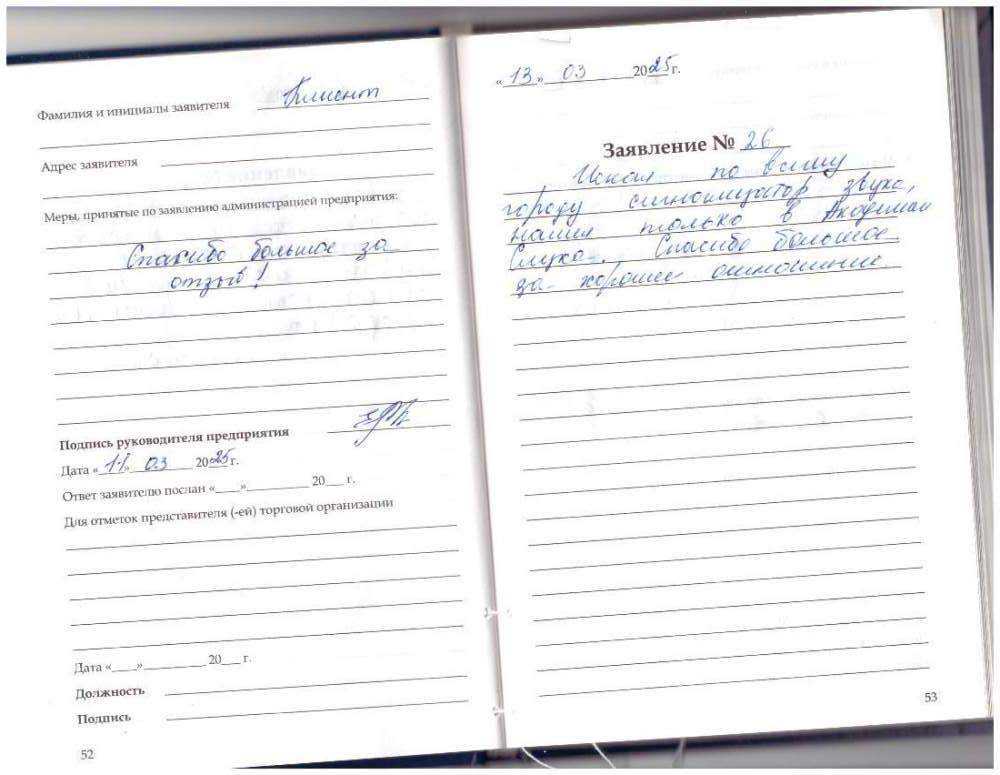 Фамилия и инициалы заявителя Клиент
Адрес заявителя
Меры, принятые по заявлению администрацией предприятия:
Спасибо большое за
отзыв!
Подпись руководителя предприятия
Дата «11» 03 2025 г.
Ответ заявителю послан «___»_________ 20__ г.
Для отметок представителя (-ей) торговой организации
Дата «___»_________ 20__ г.
Должность
Подпись
52
«13» 03 2025 г.
Заявление № 26
Искал по всему
городу сигнализатор звука,
нашел только в Академии
Слуха. Спасибо большое
за хорошее отношение.
53